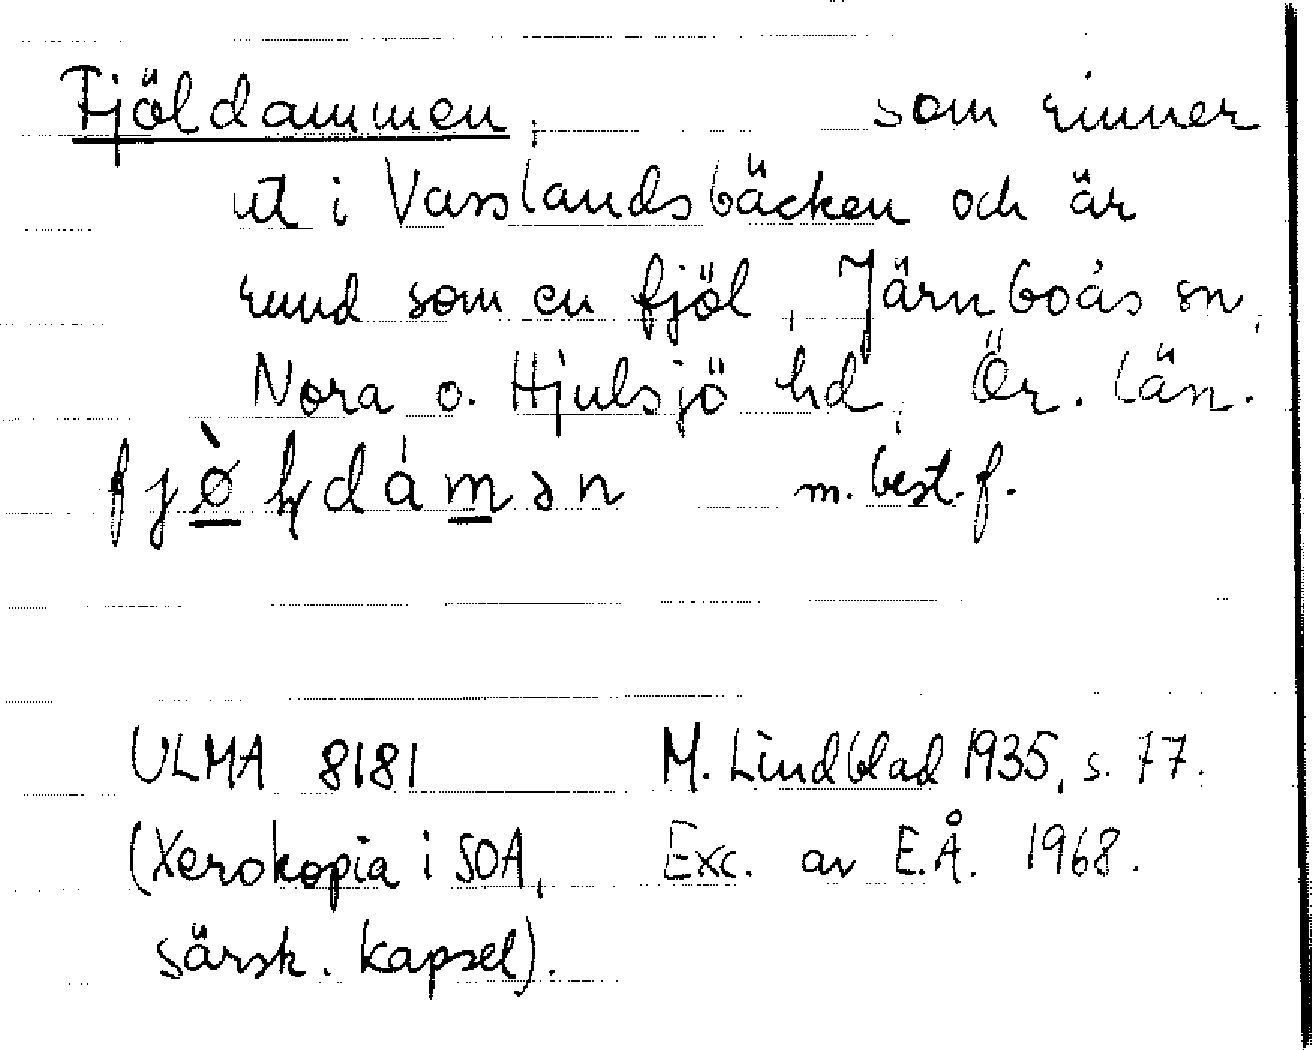 Fjöldammen, som rinner
ut i Vasslandsbäcken och är
rund som en fjöl, Järnboås sn,
Nora o. Hjulsjö hd, Ör. län.
fjø̀ɽdámən m. best. f.
ULMA 8181 M. Lindblad 1935, s. 77.
(Xerokopia i SOA, Exc. av E.Å. 1968.
särsk. kapsel).